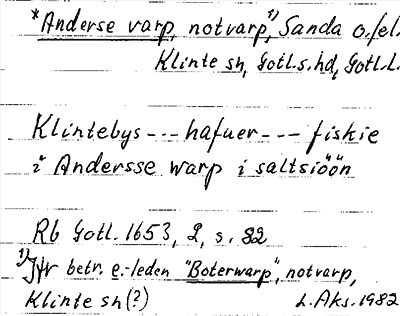 *Anderse varp, notvarp,¹⁾ Sanda o. fel.
Klinte sn, Gotl.s. hd, Gotl. L.
Klintebys --- hafuer --- fiskie
i Andersse warp i saltsiöön
Rb Gotl. 1653, 2, s. 82
¹⁾Jfr betr. e.-leden "Boterwarp", notvarp,
Klinte sn (?)
L. Aks. 1982